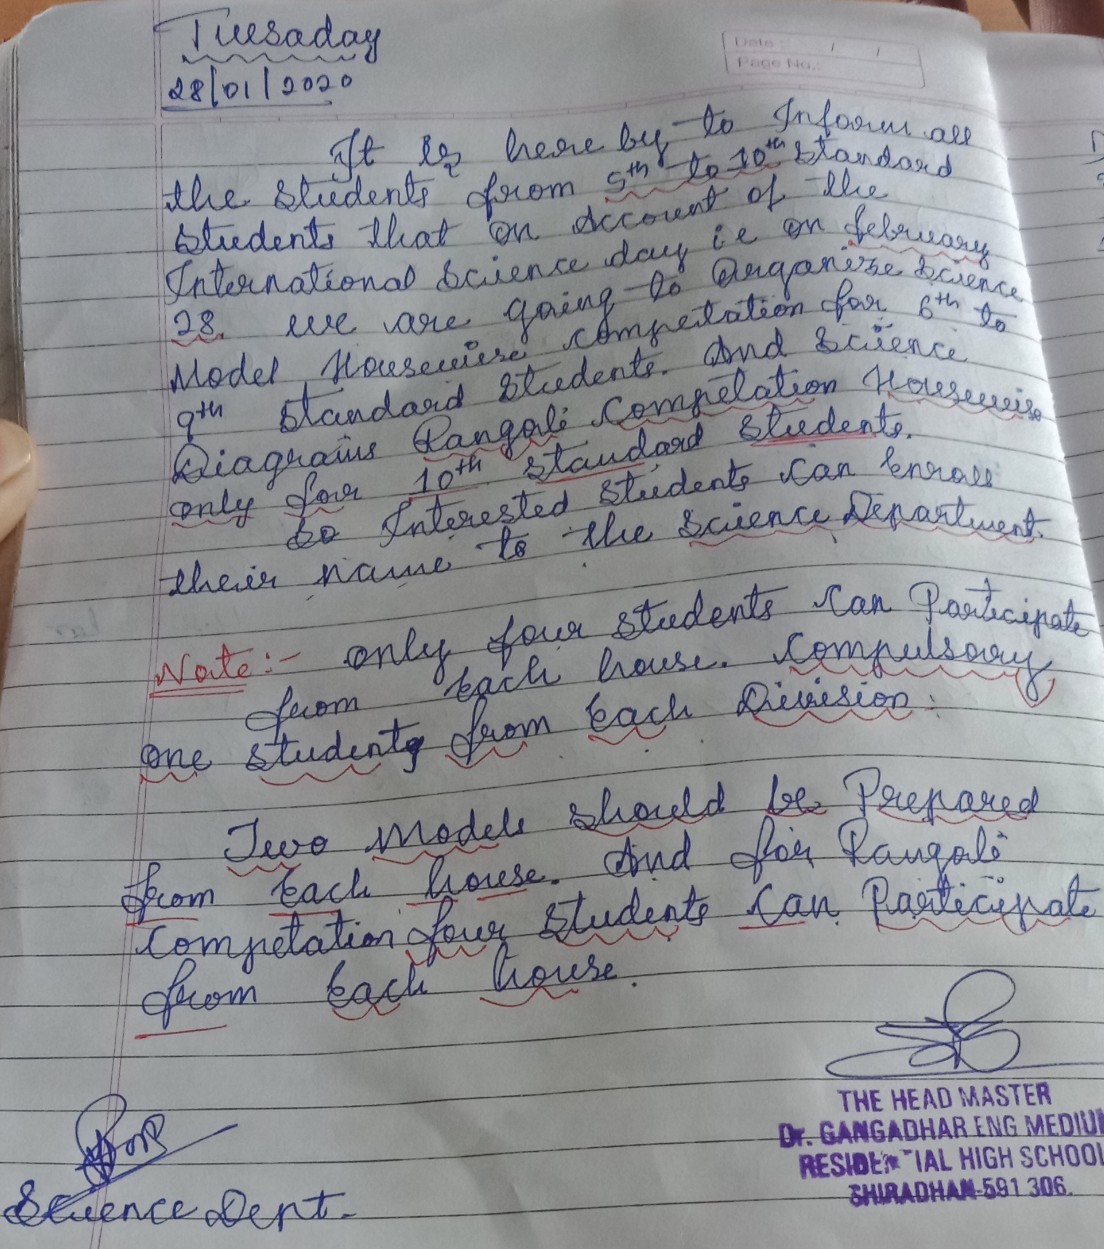 Tuesaday
28/01/2020
Date : / /
Page No.:
It is here by to Inform all
the students from 5th to 10th standard
students that on account of the
International Science day ie on february
28. we are going to Organise Science
Model Housewise competation for 6th to
9th standard students. And Science
Diagrams Rangoli Competation Housewise
only for 10th standard students.
So Interested students can Enroll
their name to the Science Department.
Note:- only four students can Participate
from Each house. Compulsory
one student from Each Division.
Two Models should be Prepared
from Each house. And for Rangoli
Competation four students can Participate
from Each house.
THE HEAD MASTER
Dr. GANGADHAR ENG MEDIUM
RESIDENTIAL HIGH SCHOOL
SHIRADHAN-591 306.
Science Dept.